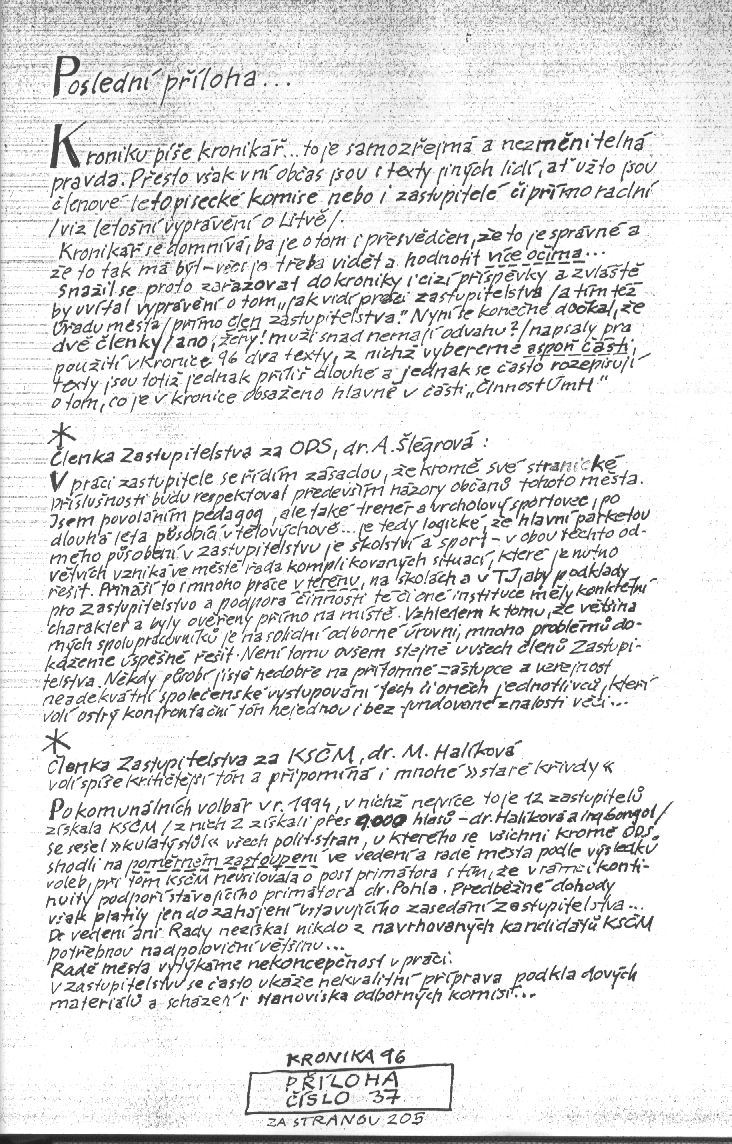 Poslední příloha...
Kroniku píše kronikář... to je samozřejmá a nezměnitelná
pravda. Přesto však v ní občas jsou i texty jiných lidí, ať už to jsou
členové letopisecké komise nebo i zastupitelé či přímo radní
/viz letošní vyprávění o Litvě/.
Kronikář se domnívá, ba je o tom i přesvědčen, že to je správné a
že to tak má být - věci je třeba vidět a hodnotit více očima...
Snažil se proto zařazovat do kroniky i cizí příspěvky a zvláště
by uvítal vyprávění o tom „jak vidí práci zastupitelstva /a tím též
Úradu města/ přímo člen zastupitelstva." Nyní se konečně dočkal, že
dvě členky /ano, ženy! muži snad nemají odvahu?/ napsaly pro
použití v Kronice 96 dva texty, z nichž vybereme aspoň části,
texty jsou totiž jednak příliš dlouhé a jednak se často rozepisují
o tom, co je v kronice obsaženo hlavně v části „Činnost ÚmH"
*
Členka Zastupitelstva za ODS, dr. A. Šlégrová:
V práci zastupitele se řídím zásadou, že kromě své stranické
příslušnosti budu respektovat především názory občanů tohoto města.
Jsem povoláním pedagog, ale také trenér a vrcholový sportovec, po
dlouhá léta působící v tělovýchově... je tedy logické, že hlavní parketou
mého působení v Zastupitelstvu je školství a sport - v obou těchto od-
větvích vzniká ve městě řada komplikovaných situací, které je nutno
řešit. Přináší to i mnoho práce v terénu, na školách a v TJ, aby podklady
pro Zastupitelstvo a podpora činnosti té či oné instituce měly konkrétní
charakter a byly ověřeny přímo na místě. Vzhledem k tomu, že většina
mých spolupracovníků je na solidní odborné úrovni, mnoho problémů do-
kážeme úspěšně řešit. Není tomu ovšem stejně u všech členů Zastupi-
telstva. Někdy působí jistě nedobře na přítomné zástupce a veřejnost
neadekvátní společenské vystupování těch či oněch jednotlivců, kteří
volí ostrý konfrontační tón nejednou i bez fundované znalosti věci...
*
Členka Zastupitelstva za KSČM, dr. M. Halíková
volí spíše kritičtější tón a připomíná i mnohé »staré křivdy«
Po komunálních volbách v r. 1994, v nichž nejvíce to je 12 zastupitelů
získala KSČM /z nich 2 získali přes 9.000 hlasů - dr. Halíková a ing. Bongol/
se sešel »kulatý stůl« všech polit. stran, u kterého se všichni kromě ODS
shodli na poměrném zastoupení ve vedení a radě města podle výsledků
voleb, při tom KSČM neusilovala o post primátora s tím, že v rámci konti-
nuity podpoří stávajícího primátora dr. Pohla. Předběžné dohody
však platily jen do zahájení ustavujícího zasedání Zastupitelstva...
Do vedení ani Rady nezískal nikdo z navrhovaných kandidátů KSČM
potřebnou nadpoloviční většinu...
Radě města vytýkáme nekoncepčnost v práci.
V zastupitelstvu se často ukáže nekvalitní příprava podkladových
materiálů a scházení i stanoviska odborných komisí...
KRONIKA 96
PŘÍLOHA
ČÍSLO 37
ZA STRANOU 205